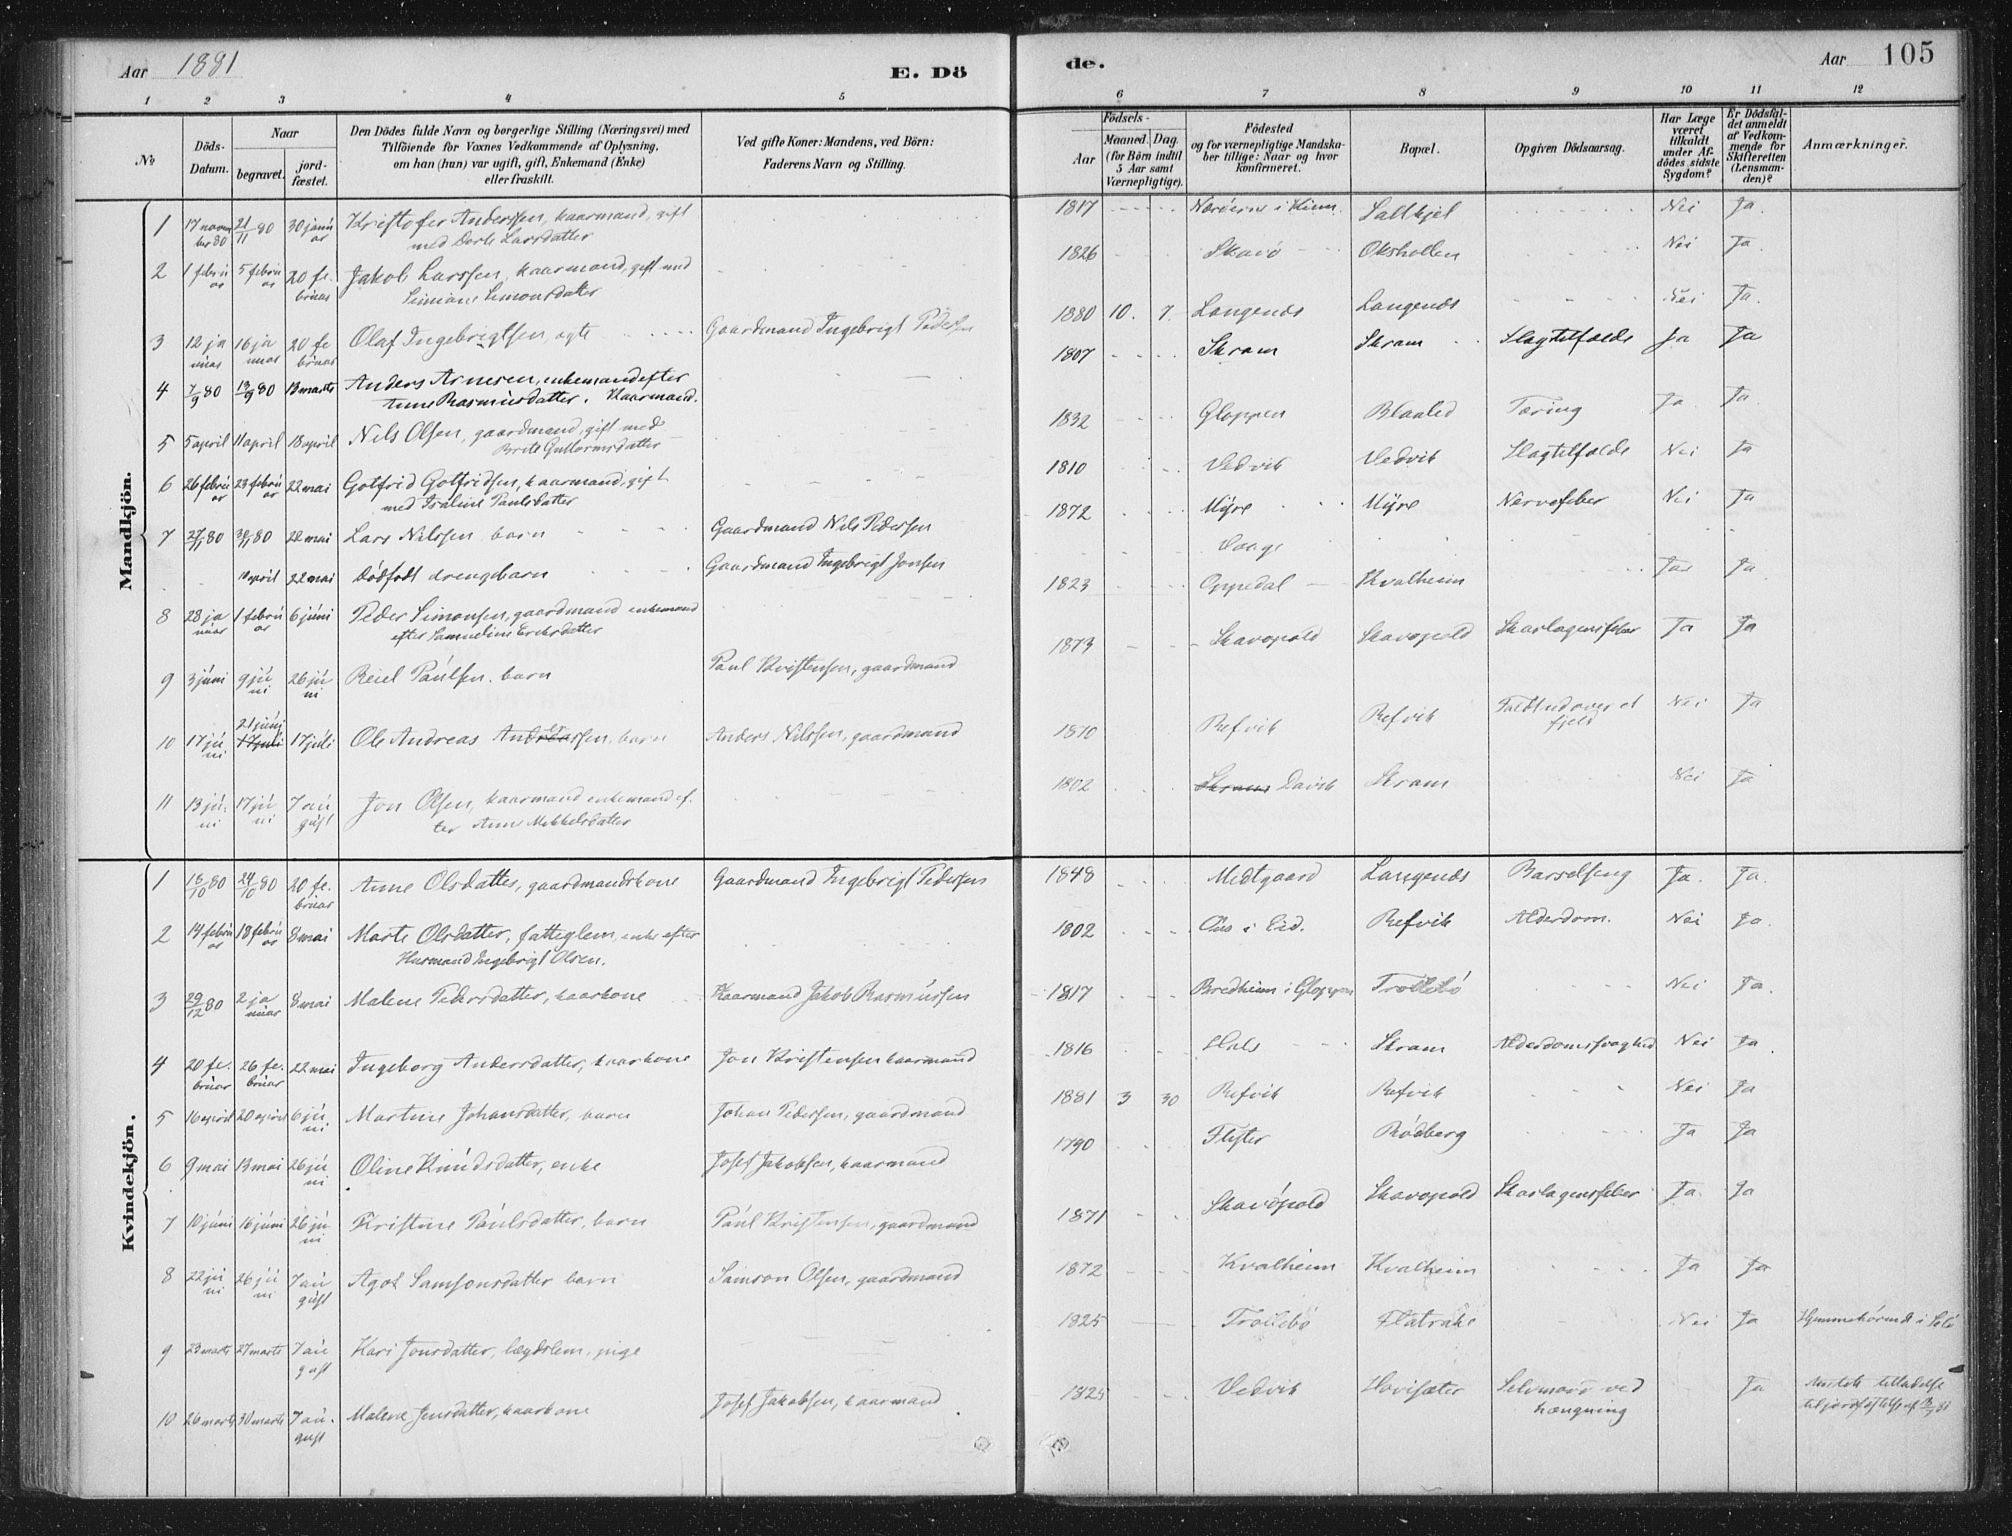 Aar 1881
E. Dö
de.
Aar
105
1 2 3 4 5 6 7 8 9 10 11 12
No
Döds-
Datum.
Naar
begravet.
jord-
fæstet.
Den Dödes fulde Navn og borgerlige Stilling (Næringsvei) med
Tilföiende for Voxnes Vedkommende af Oplysning,
om han (hun) var ugift, gift, Enkemand (Enke)
eller fraskilt.
Ved gifte Koner: Mandens, ved Börn:
Faderens Navn og Stilling.
Födsels-
Aar
Maaned. Dag.
(for Börn indtil
5 Aar samt
Værnepligtige).
Födested
og for værnepligtige Mandska-
ber tillige: Naar og hvor
konfirmeret.
Bopæl.
Opgiven Dödsaarsag.
Har Læge
været
tilkaldt
under Af-
dödes sidste
Sygdom?
Er Dödsfal-
det anmeldt
af Vedkom-
mende for
Skifteretten
(Lensman-
den)?
Anmærkninger.
Mandkjön.
1 17 novem ber 80 21/11 80 30 janu ar Kristofer Anderssen, kaarmand, gift
med Dorte Larsdatter 1817 Saltkjel Nei Ja.
2 1 febru ar 5 febru ar 20 fe bruar Jakob Larssen, kaarmand, gift med
Simiane Simonsdatter 1826 Skavö Okshollen Nei Ja
3 12 ja nuar 16 ja nuar 20 fe bruar Olaf Ingebrigtsen, egte Gaardmand Ingebrigt Pedersen 1880 10. 7 Langenæs Langenæs Nei Ja.
4 7/9 80 13/9 80 13 marts Anders Arnesen, enkemand efter
Anne Rasmusdatter. Kaarmand. 1807 Skram Skram Slagtilfælde Ja Ja
5 5 april 11 april 18 april Nils Olsen, gaardmand, gift med
Brite Guttormsdatter 1832 Gloppen Blaalid Tæring Ja Ja
6 26 febru ar 23 febru ar 22 mai Gotfrid Gotfridsen, kaarmand, gift
med Iraline Paulsdatter 1810 Vedvik Vedvik Slagtilfælde Nei Ja
7 27/11 80 30/11 80 22 mai Lars Nilssen barn Gaardmand Nils Pedersen 1872 Myre Myre Nervefeber Nei Ja
10 april 22 mai Dödfødt drengebarn Gaardmand Ingebrigt Jonsen Vaage
8 28 ja nuar 1 febru ar 6 juni Peder Simonsen, gaardmand enkemand
efter Samueline Eriksdatter 1823 Oppedal Kvalheim Ja
9 3 juni 9 ju ni 26 ju ni Reiel Paulsen. barn Paul Kristensen, gaardmand 1873 Skavøpold Skavøpold Skarlagensfeber Ja Ja
10 17 ju ni 21 juni 17 juli 17 juli Ole Andreas Andreassen, barn Anders Nilssen, gaardmand 1870 Refvik Refvik Faldt ud over et
fjeld Nei Ja
11 13 ju ni 17 ju ni 7 au gust Jon Olsen, kaarmand enkemand ef-
ter Anne Mikkelsdatter 1802 Skram Davik Skram Nei Ja
Kvindekjön.
1 18/10 80 24/10 80 20 fe. bruar Anne Olsdatter, gaardmandskone Gaardmand Ingebrigt Pedersen 1848 Medtgaard Langenæs Barselseng Ja. Ja.
2 14 febru ar 18 febru ar 8 mai Marte Olsdatter, fatteglem, enke efter
Husmand Ingebrigt Olsen. 1802 Aus i Eid. Refvik Alderdom. Nei Ja
3 29/12 80 2 ja nuar 8 mai Malene Pedersdatter, kaarkone Kaarmand Jakob Rasmussen 1817 Bredheim i Gloppen Tröllebö Nei Ja.
4 20 fe. bruar 26 fe. bruar 22 mai Ingeborg Andersdatter, kaarkone Jon Kristensen kaarmand 1816 Hals Skram Alderdomssvaghed Nei Ja
5 16 april 20 april 6 ju ni Martine Johansdatter, barn Johan Pedersen, gaardmand 1881 3 30 Refvik Refvik Nei Ja
6 9 mai 13 mai 26 ju ni Oline Knudsdatter, enke Josef Jakobsen, kaarmand 1790 Flister Rödberg Ja Ja
7 10 juni 16 juni 26 ju ni Kristine Paulsdatter, barn Paul Kristensen, gaardmand 1871 Skavøpold Skavøpold Skarlagensfeber Ja Ja
8 22 ju ni 26 ju ni 7 au gust Agot Samsonsdatter barn Samson Olsen, gaardmand 1872 Kvalheim Kvalheim Ja Ja
9 23 marts 27 marts 7 au gust Kari Jonsdatter, lægdslem, pige 1825 Tröllebö Flatrake Nei Ja Hjemmehörende i Selö
10 26 marts 30 marts 7 au- gust Malene Jensdatter, kaarkone Josef Jakobsen, kaarmand 1825 Vedvik Hovisæter Selvmord ved
hængning Ja tilladelse